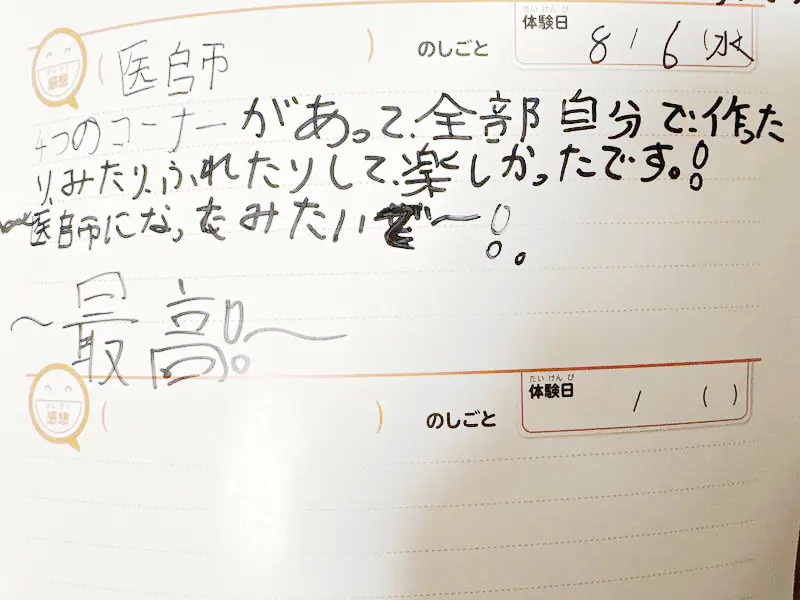 感想 ( 医師 ) のしごと
たいけんび
体験日 8 / 6 (水)
4つのコーナーがあって、全部自分で、作った
り、みたり、ふれたりして、楽しかったです。!
医師になってみたいぜ〜!
〜最高!〜
感想 ( ) のしごと
たいけんび
体験日 / ( )